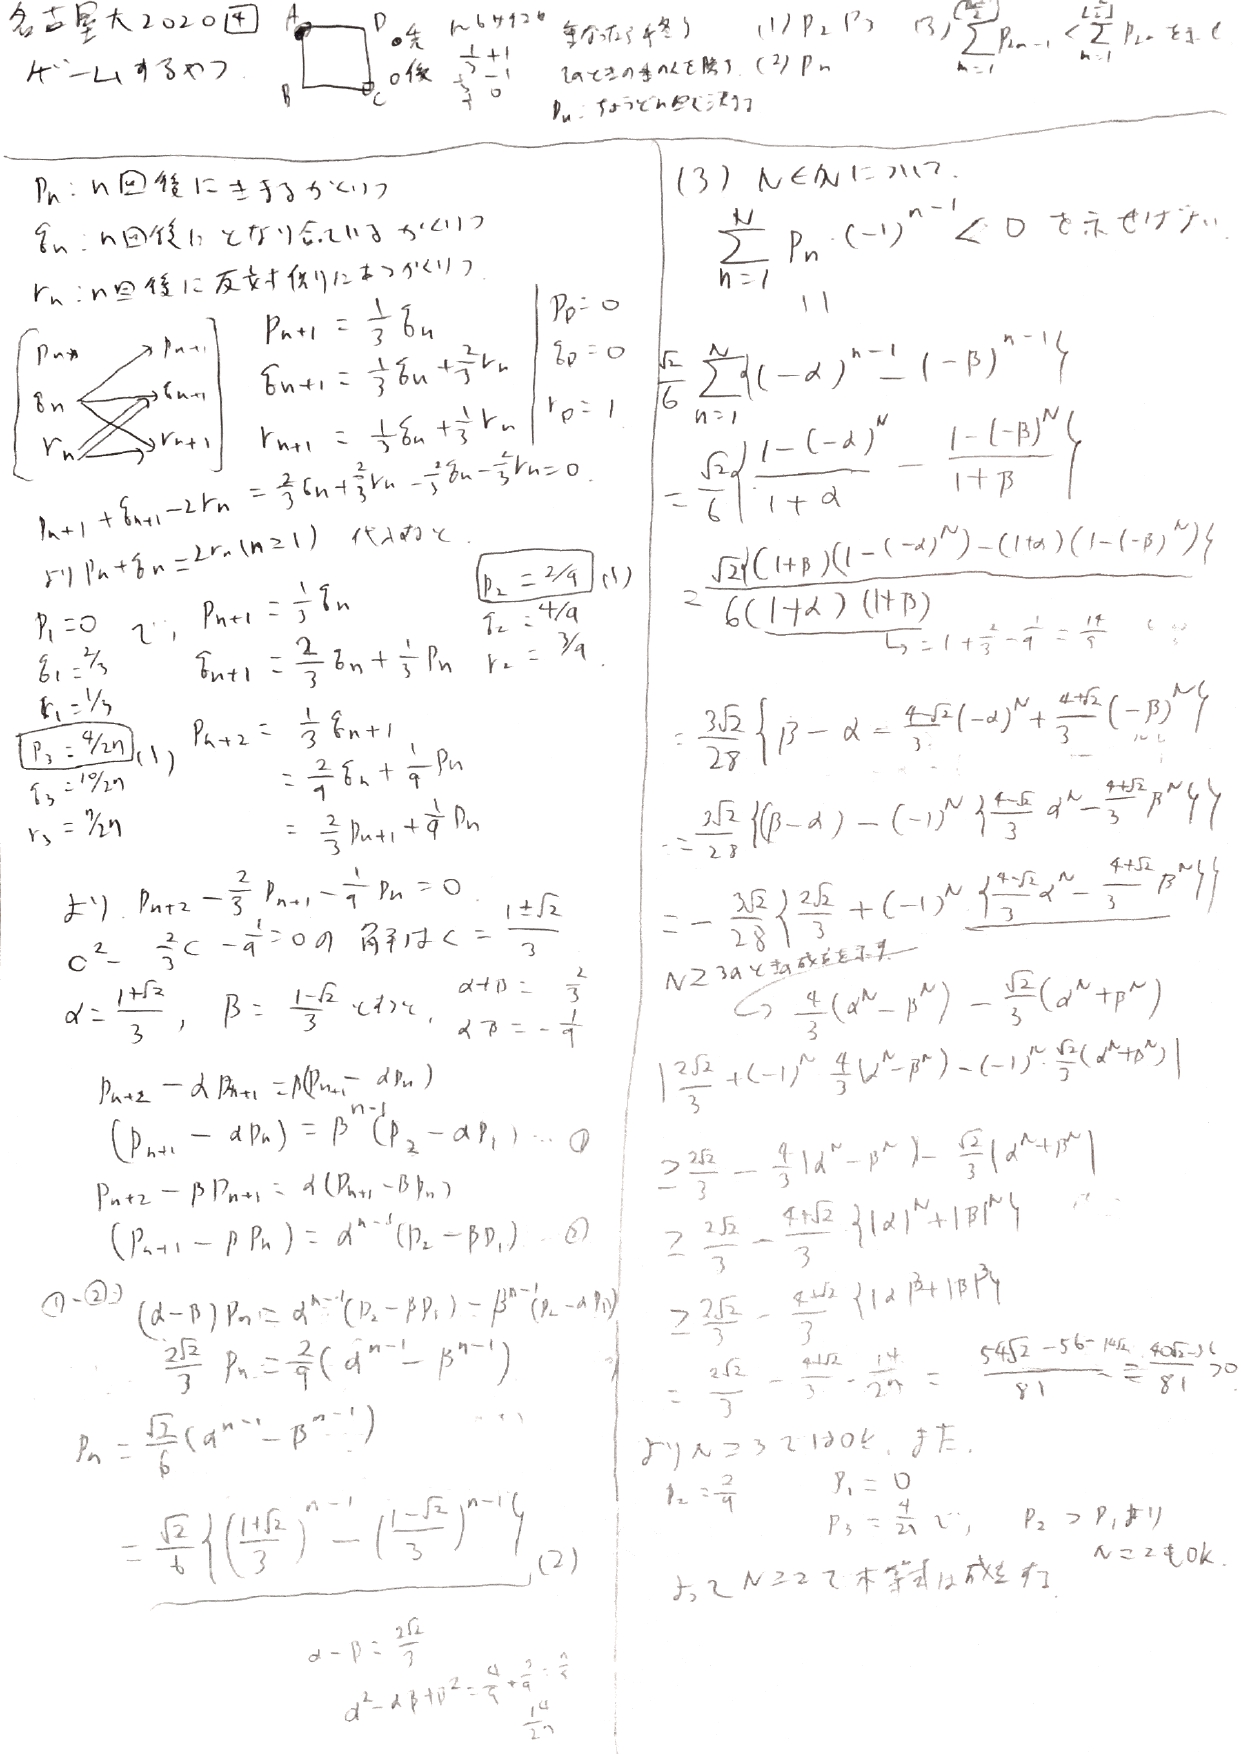 名古屋大2020 4
ゲームするやつ
A D B C
先 後
1/3 +1
1/3 -1
1/3 0
重なったら終り
(1) P2 P3
(2) Pn
(3) Σ P2m-1 < Σ P2m を示せ
Pn: ちょうどn回で決する
Pn: n回後にきまるかくりつ
qn: n回後にとなり合っているかくりつ
rn: n回後に反対側にあるかくりつ
Pn+1 = 1/3 qn
qn+1 = 1/3 qn + 2/3 rn
rn+1 = 1/3 qn + 1/3 rn
P0 = 0
q0 = 0
r0 = 1
Pn+1 + qn+1 - 2rn+1 = 2/3 qn + 2/3 rn - 2/3 qn - 2/3 rn = 0.
より Pn + qn = 2rn (n≧1) 代入すると
P1 = 0 で, Pn+1 = 1/3 qn
q1 = 2/3 qn+1 = 2/3 qn + 1/3 Pn
r1 = 1/3
P2 = 2/9 (1)
q2 = 4/9
r2 = 3/9
P3 = 4/27 (1)
q3 = 10/27
r3 = 7/27
Pn+2 = 1/3 qn+1
= 2/9 qn + 1/9 Pn
= 2/3 Pn+1 + 1/9 Pn
より Pn+2 - 2/3 Pn+1 - 1/9 Pn = 0
c² - 2/3 c - 1/9 = 0 の解は c = (1±√2)/3
α = (1+√2)/3, β = (1-√2)/3 とおくと, α+β = 2/3
αβ = -1/9
Pn+2 - αPn+1 = β(Pn+1 - αPn)
(Pn+1 - αPn) = β^(n-1) (P2 - αP1) … ①
Pn+2 - βPn+1 = α(Pn+1 - βPn)
(Pn+1 - βPn) = α^(n-1) (P2 - βP1) … ②
①-②より (α-β)Pn = α^(n-1) (P2 - βP1) - β^(n-1) (P2 - αP1)
2√2/3 Pn = 2/9 (α^(n-1) - β^(n-1))
Pn = √2/6 (α^(n-1) - β^(n-1))
= √2/6 { ((1+√2)/3)^(n-1) - ((1-√2)/3)^(n-1) } (2)
α-β = 2√2/3
α² - αβ + β² = 4/9 + 3/9 = 7/9
14/27
(3) N∈ℕについて.
Σ[n=1,N] Pn・(-1)^(n-1) < 0 を示せばよい.
||
√2/6 Σ[n=1,N] {(-α)^(n-1) - (-β)^(n-1)}
= √2/6 { (1-(-α)^N)/(1+α) - (1-(-β)^N)/(1+β) }
= √2{(1+β)(1-(-α)^N) - (1+α)(1-(-β)^N)} / 6(1+α)(1+β)
↳ = 1 + 2/3 - 1/9 = 14/9
= 3√2/28 { β-α - (4-√2)/3 (-α)^N + (4+√2)/3 (-β)^N }
= 3√2/28 {(β-α) - (-1)^N {(4-√2)/3 α^N - (4+√2)/3 β^N}}
= - 3√2/28 { 2√2/3 + (-1)^N {(4-√2)/3 α^N - (4+√2)/3 β^N}}
N≧3のとき成立を示す
↳ 4/3 (α^N - β^N) - √2/3 (α^N + β^N)
| 2√2/3 + (-1)^N 4/3 (α^N - β^N) - (-1)^N・√2/3 (α^N + β^N) |
≧ 2√2/3 - 4/3 |α^N - β^N| - √2/3 |α^N + β^N|
≧ 2√2/3 - (4+√2)/3 {|α|^N + |β|^N}
≧ 2√2/3 - (4+√2)/3 {|α|³ + |β|³}
= 2√2/3 - (4+√2)/3・14/27 = (54√2 - 56 - 14√2)/81 = (40√2-56)/81 > 0
よりN≧3ではOK. また,
P2 = 2/9 P1 = 0
P3 = 4/27 で, P2 > P1より
N=2もOK.
よってN≧2で不等式は成立する